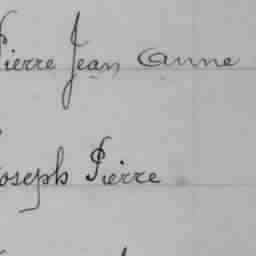 Pierre Jean Anne
Joseph Pierre